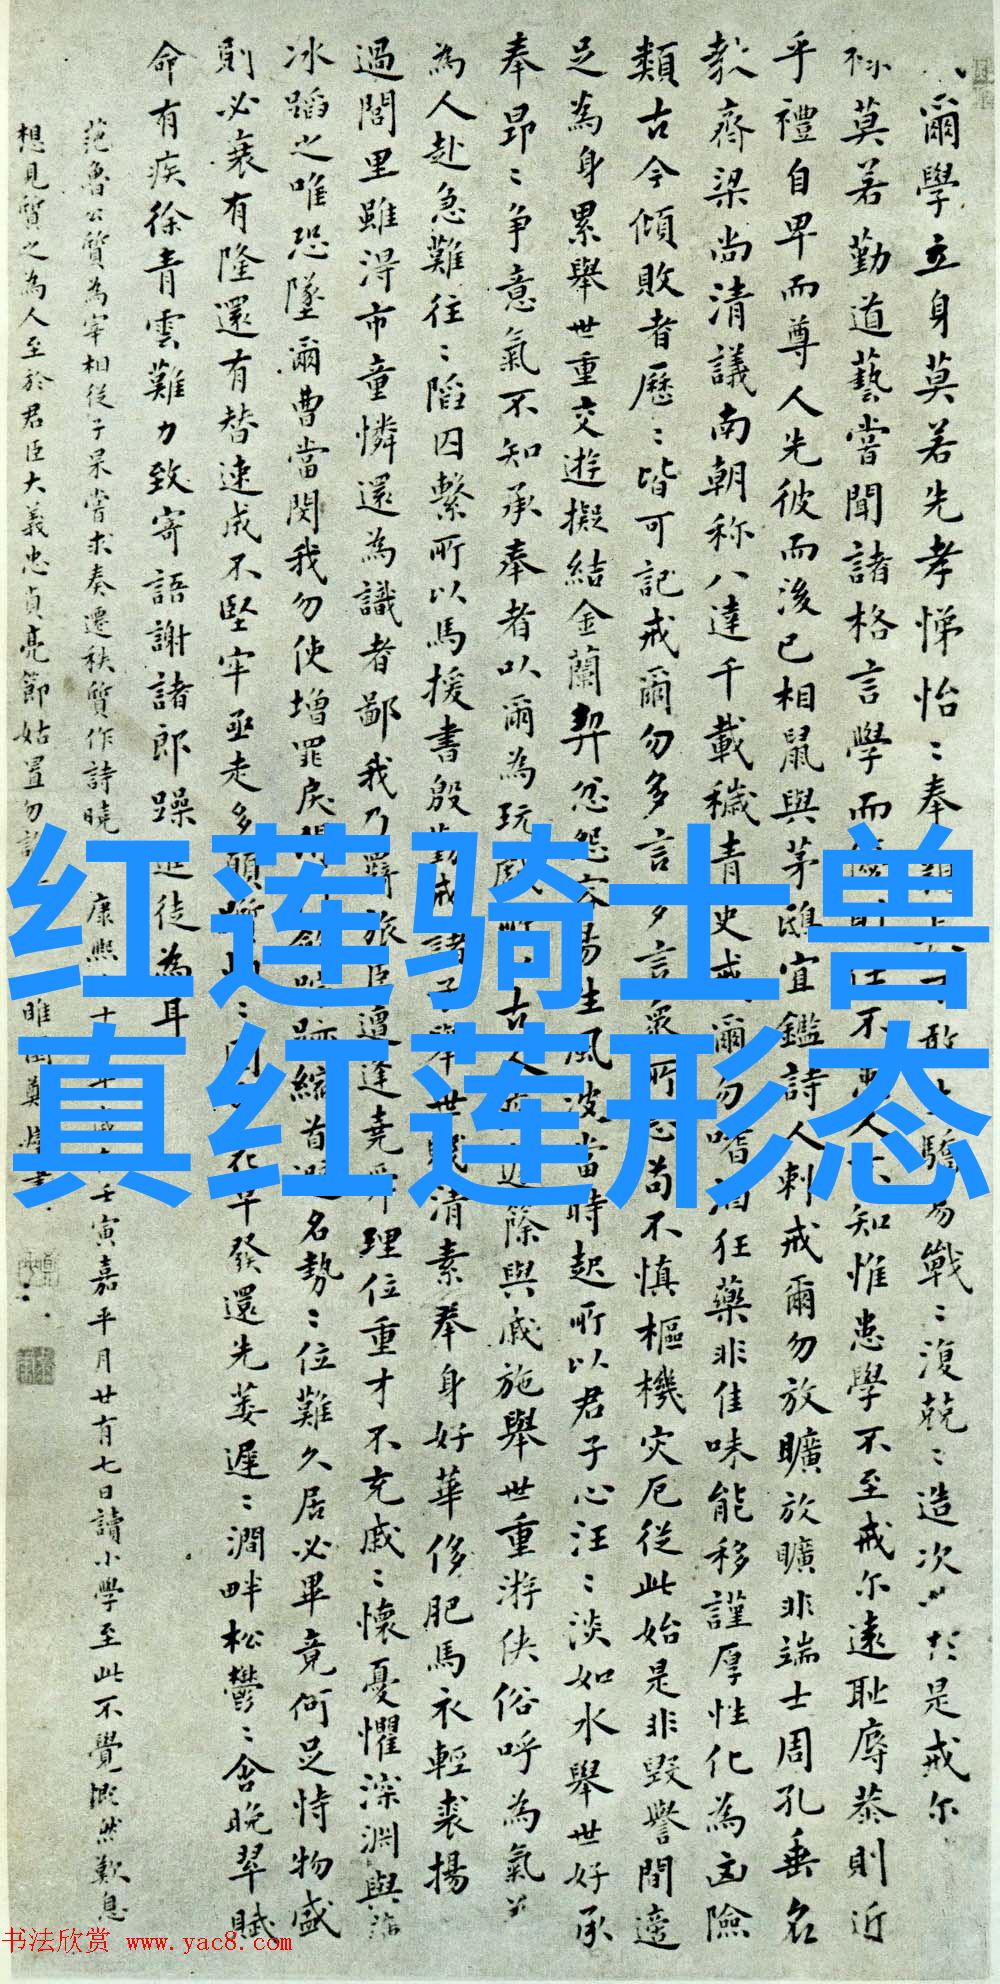 爾學立身莫若先孝悌怡〻奉不敢驕易戰〻復兢〻造次於是戒尔
祿莫若勤道藝嘗聞諸格言學而則仕不人知惟患學不至戒尔遠恥辱恭則近
乎禮自卑而尊人先彼而後己相鼠與茅鴟宜鑑詩人刺戒爾勿放曠放曠非端士周孔垂名
教齊梁尚清議南朝称八達千載穢青史戒爾勿嗜酒狂藥非佳味能移謹厚性化為凶險
類古今傾敗者歷〻皆可記戒爾勿多言多言衆所忌苟不慎樞機災厄從此始是非毀譽間適
足為身累舉世重交遊擬結金蘭契忿怨容易生風波當時起所以君子心汪〻淡如水舉世好承
奉昂〻爭意氣不知承奉者以爾為玩戲所古人篨與戚施舉世重游俠俗呼為氣
為人赴急難往〻陷囚繫所以馬援書殷勤戒諸子舉世賤清素奉身好華侈肥馬衣輕裘揚
過閭里雖得市童憐還為識者鄙我乃羇旅臣遭逢堯舜理位重才不充戚〻懷憂懼深淵與
冰蹈之唯恐墜爾曹當閔我勿使增罪戾斂跡縮首避名勢〻位難久居必畢竟何足恃物盛
則必衰有隆還有替速成不堅牢亟走多顛〻花早發還先萎遲〻澗畔松鬱〻含晚翠賦
命有疾徐青雲難力致寄語謝諸郎躁進徒為耳
范魯公質為宰相從子杲嘗求奏遷秩質作詩曉 康熙十年壬寅嘉平月廿有七日讀小學至此不覺慨然歎息
想見質之為人至於君臣大義忠貞亮節姑置勿 睢鄭書
红莲骑士兽
真红莲形态
书法欣赏 www.yac8.com